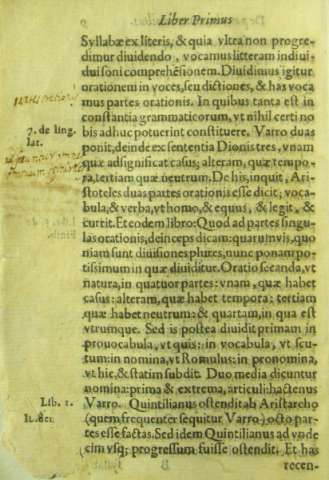 Liber Primus
Syllabæ ex literis, & quia vltra non progre-
dimur diuidendo, vocamus litteram indiui-
dui soni comprehēsionem. Diuidimus igitur
orationem in voces, seu dictiones, & has voca
mus partes orationis. In quibus tanta est in
constantia grammaticorum, vt nihil certi no
bis adhuc potuerint constituere. Varro duas
7. de ling.
lat.
ponit, deinde ex sententia Dionis tres, vnam
quæ adsignificat casus; alteram, quæ tempo-
ra, tertiam quæ neutrum. De his, inquit, Ari-
stoteles duas partes orationis esse dicit; voca-
bula, & verba, vt homo, & equus, & legit, &
currit. Et eodem libro: Quod ad partes singu-
las orationis, deinceps dicam: quarum vis, quo
niam sunt diuisiones plures, nunc ponam po-
tissimum in quæ diuiditur. Oratio secanda, vt
natura, in quatuor partes: vnam, quæ habet
casus: alteram, quæ habet tempora: tertiam
quæ habet neutrum: & quartam, in qua est
vtrumque. Sed is postea diuidit primam in
prouocabula, vt quis: in vocabula, vt scu-
tum: in nomina, vt Romulus: in pronomina,
vt hic, & statim subdit. Duo media dicuntur
nomina: prima & extrema, articuli: hactenus
Lib. 1.
Varro. Quintilianus ostendit ab Aristarcho
(quem frequenter sequitur Varro) octo par-
tes esse factas. Sed idem Quintilianus ad vnde
cim vsq; progressum fuisse ostendit. Et has
B
recen-